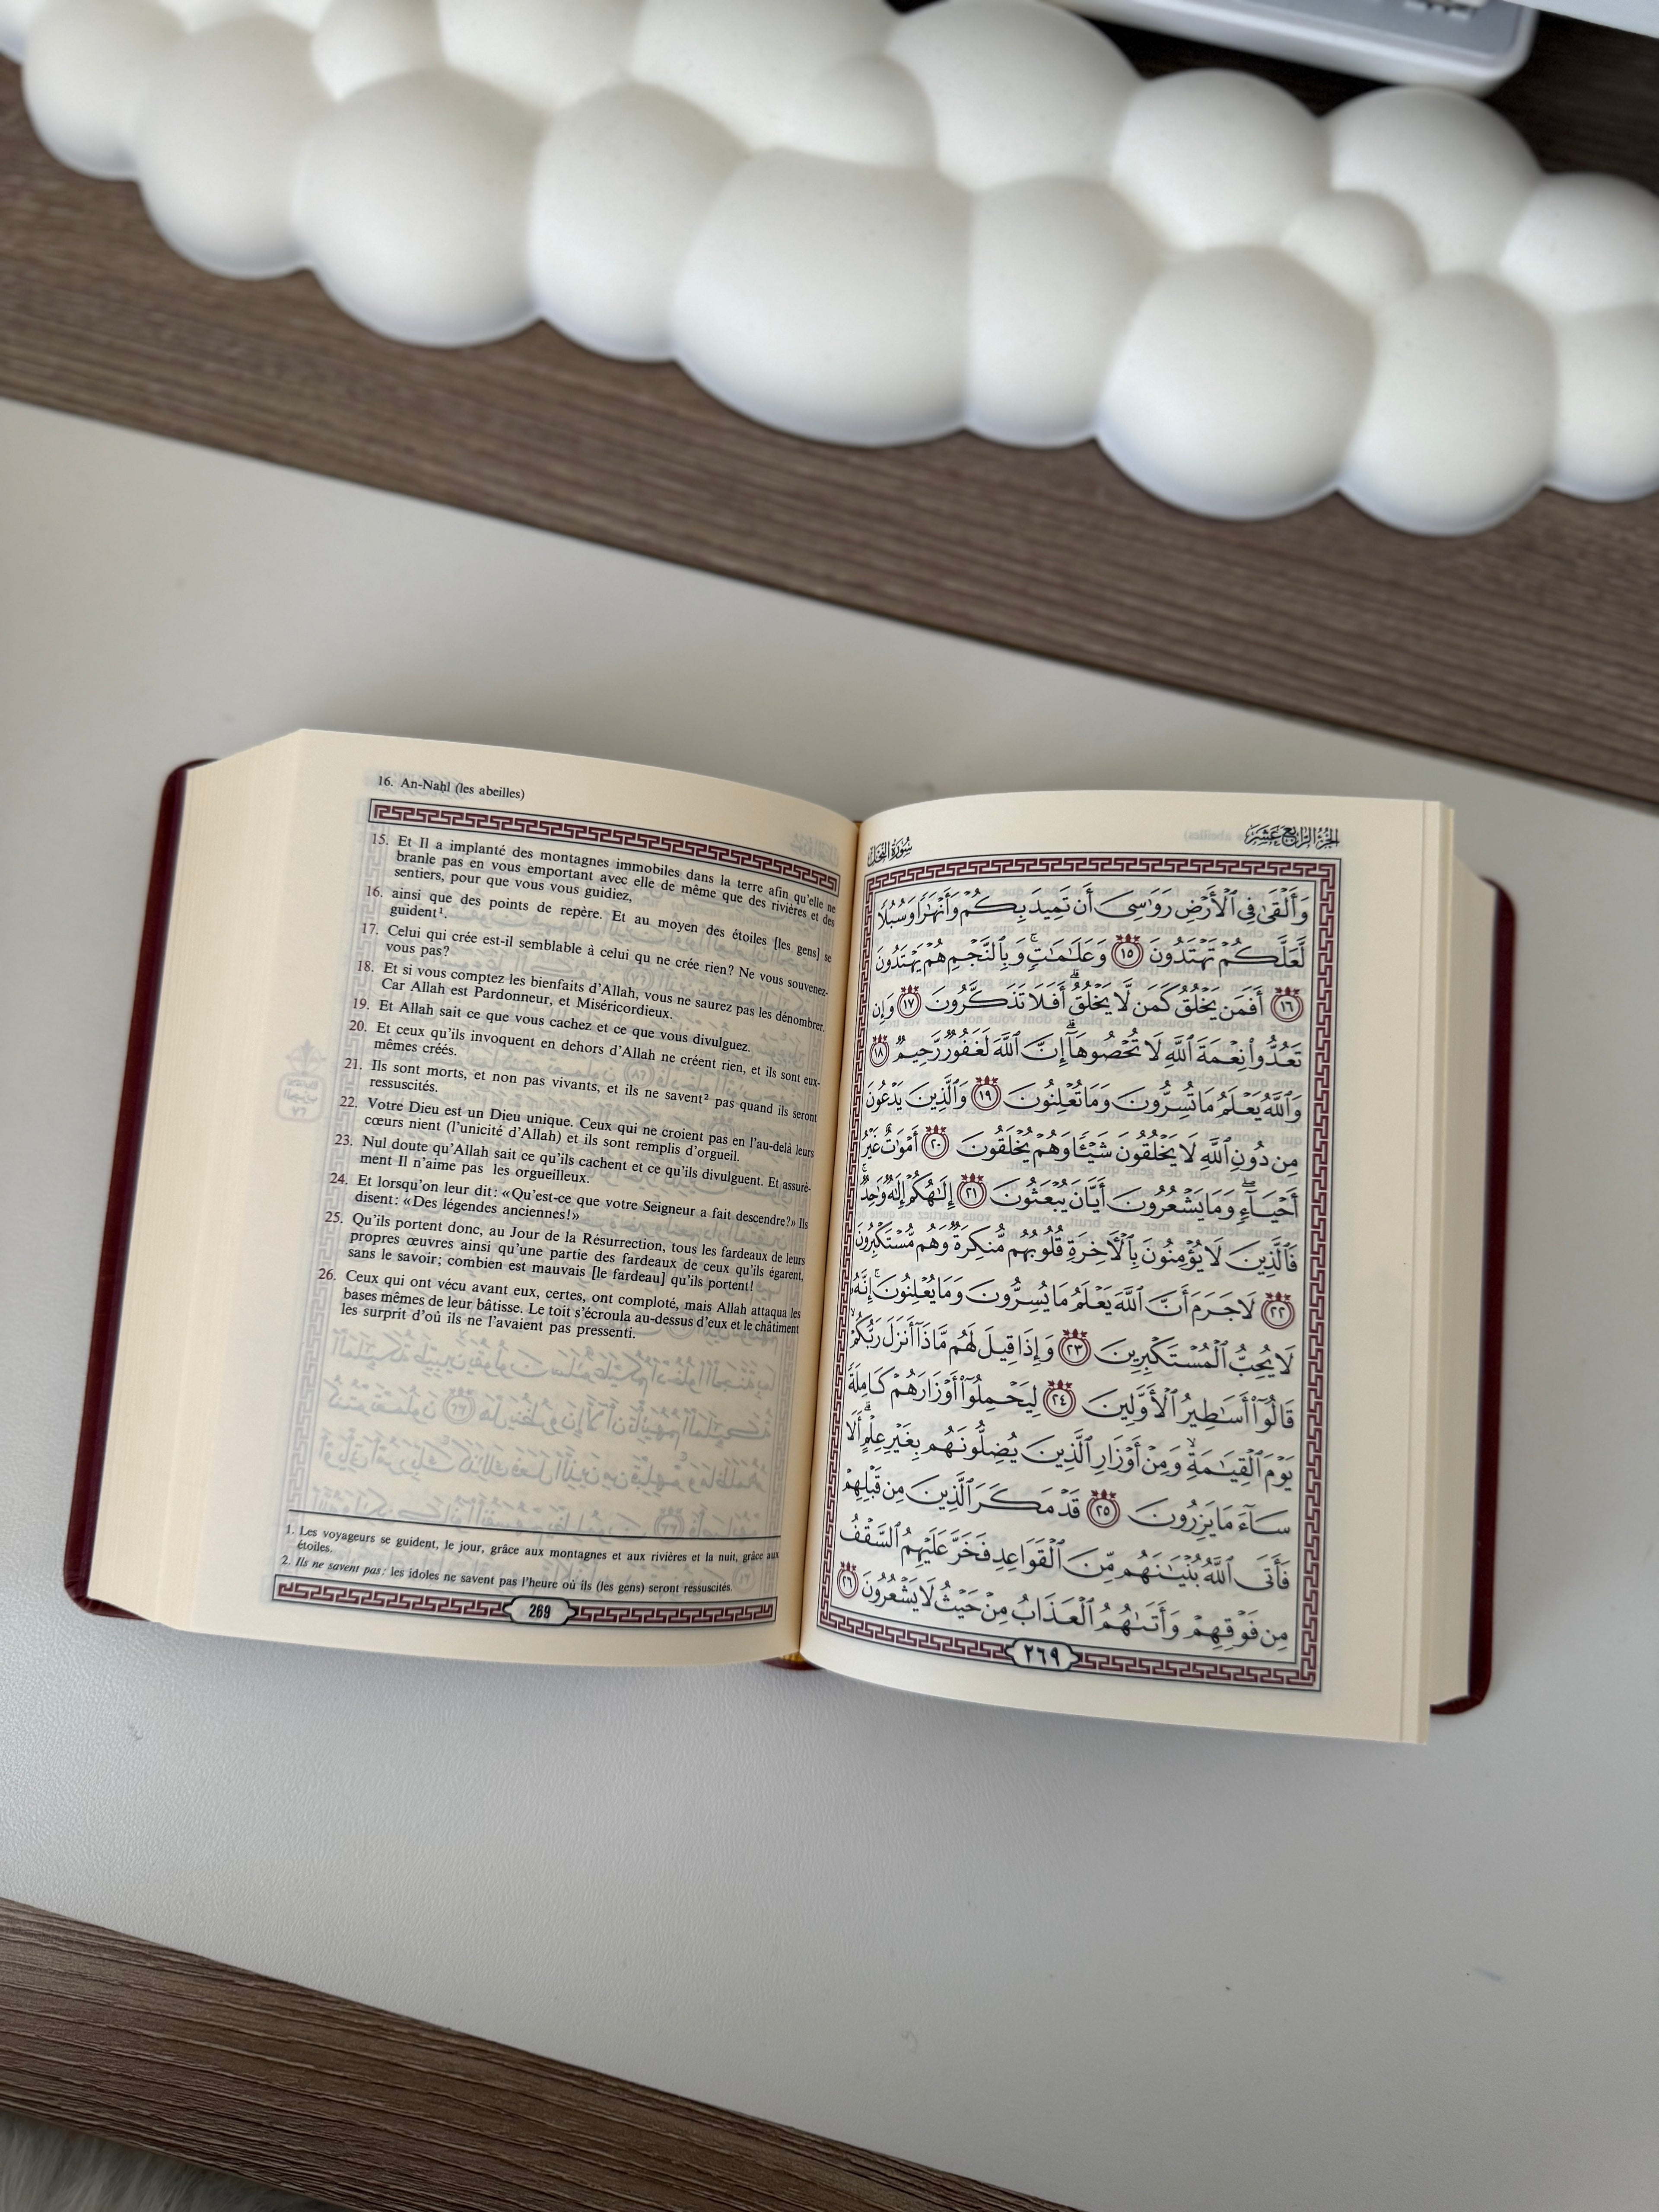 16. An-Naḥl (les abeilles)
15. Et Il a implanté des montagnes immobiles dans la terre afin qu'elle ne
branle pas en vous emportant avec elle de même que des rivières et des
sentiers, pour que vous vous guidiez,
16. ainsi que des points de repère. Et au moyen des étoiles [les gens] se
guident¹.
17. Celui qui crée est-il semblable à celui qu ne crée rien? Ne vous souvenez-
vous pas?
18. Et si vous comptez les bienfaits d'Allah, vous ne saurez pas les dénombrer.
Car Allah est Pardonneur, et Miséricordieux.
19. Et Allah sait ce que vous cachez et ce que vous divulguez.
20. Et ceux qu'ils invoquent en dehors d'Allah ne créent rien, et ils sont eux-
mêmes créés.
21. Ils sont morts, et non pas vivants, et ils ne savent² pas quand ils seront
ressuscités.
22. Votre Dieu est un Dieu unique. Ceux qui ne croient pas en l'au-delà leurs
cœurs nient (l'unicité d'Allah) et ils sont remplis d'orgueil.
23. Nul doute qu'Allah sait ce qu'ils cachent et ce qu'ils divulguent. Et assuré-
ment Il n'aime pas les orgueilleux.
24. Et lorsqu'on leur dit: «Qu'est-ce que votre Seigneur a fait descendre?» Ils
disent: «Des légendes anciennes!»
25. Qu'ils portent donc, au Jour de la Résurrection, tous les fardeaux de leurs
propres œuvres ainsi qu'une partie des fardeaux de ceux qu'ils égarent,
sans le savoir; combien est mauvais [le fardeau] qu'ils portent!
26. Ceux qui ont vécu avant eux, certes, ont comploté, mais Allah attaqua les
bases mêmes de leur bâtisse. Le toit s'écroula au-dessus d'eux et le châtiment
les surprit d'où ils ne l'avaient pas pressenti.
1. Les voyageurs se guident, le jour, grâce aux montagnes et aux rivières et la nuit, grâce aux
étoiles.
2. Ils ne savent pas: les idoles ne savent pas l'heure où ils (les gens) seront ressuscités.
269
الجزء الرابع عشر
سورة النحل
وَأَلْقَىٰ فِي ٱلْأَرْضِ رَوَٰسِيَ أَن تَمِيدَ بِكُمْ وَأَنْهَٰرًا وَسُبُلًا
لَّعَلَّكُمْ تَهْتَدُونَ ١٥ وَعَلَٰمَٰتٍ ۚ وَبِٱلنَّجْمِ هُمْ يَهْتَدُونَ
١٦ أَفَمَن يَخْلُقُ كَمَن لَّا يَخْلُقُ ۗ أَفَلَا تَذَكَّرُونَ ١٧ وَإِن
تَعُدُّوا۟ نِعْمَةَ ٱللَّهِ لَا تُحْصُوهَآ ۗ إِنَّ ٱللَّهَ لَغَفُورٌ رَّحِيمٌ ١٨
وَٱللَّهُ يَعْلَمُ مَا تُسِرُّونَ وَمَا تُعْلِنُونَ ١٩ وَٱلَّذِينَ يَدْعُونَ
مِن دُونِ ٱللَّهِ لَا يَخْلُقُونَ شَيْـًٔا وَهُمْ يُخْلَقُونَ ٢٠ أَمْوَٰتٌ غَيْرُ
أَحْيَآءٍ ۖ وَمَا يَشْعُرُونَ أَيَّانَ يُبْعَثُونَ ٢١ إِلَٰهُكُمْ إِلَٰهٌ وَٰحِدٌ ۚ
فَٱلَّذِينَ لَا يُؤْمِنُونَ بِٱلْءَاخِرَةِ قُلُوبُهُم مُّنكِرَةٌ وَهُم مُّسْتَكْبِرُونَ
٢٢ لَا جَرَمَ أَنَّ ٱللَّهَ يَعْلَمُ مَا يُسِرُّونَ وَمَا يُعْلِنُونَ ۚ إِنَّهُۥ
لَا يُحِبُّ ٱلْمُسْتَكْبِرِينَ ٢٣ وَإِذَا قِيلَ لَهُم مَّاذَآ أَنزَلَ رَبُّكُمْ ۙ
قَالُوٓا۟ أَسَٰطِيرُ ٱلْأَوَّلِينَ ٢٤ لِيَحْمِلُوٓا۟ أَوْزَارَهُمْ كَامِلَةً
يَوْمَ ٱلْقِيَٰمَةِ ۙ وَمِنْ أَوْزَارِ ٱلَّذِينَ يُضِلُّونَهُم بِغَيْرِ عِلْمٍ ۗ أَلَا
سَآءَ مَا يَزِرُونَ ٢٥ قَدْ مَكَرَ ٱلَّذِينَ مِن قَبْلِهِمْ
فَأَتَى ٱللَّهُ بُنْيَٰنَهُم مِّنَ ٱلْقَوَاعِدِ فَخَرَّ عَلَيْهِمُ ٱلسَّقْفُ
مِن فَوْقِهِمْ وَأَتَىٰهُمُ ٱلْعَذَابُ مِنْ حَيْثُ لَا يَشْعُرُونَ ٢٦
٢٦٩